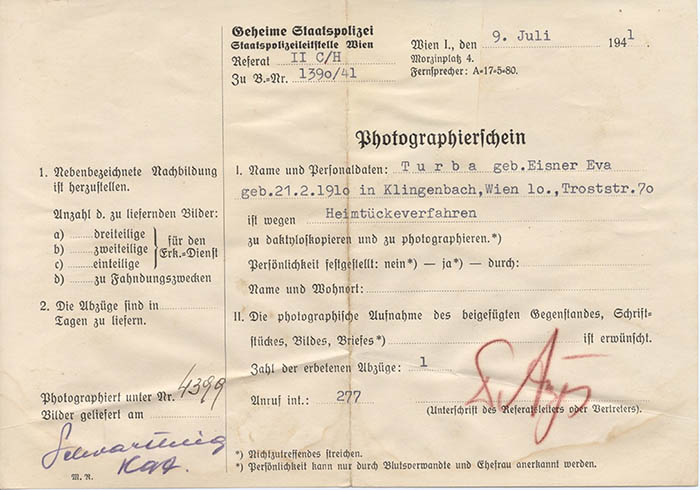 Geheime Staatspolizei
Staatspolizeileitstelle Wien
Referat II C/H
Zu B.-Nr. 1390/41
Wien I., den 9. Juli 1941
Morzinplatz 4.
Fernsprecher: A-17-5-80.
Photographierschein
1. Nebenbezeichnete Nachbildung
ist herzustellen.
Anzahl d. zu liefernden Bilder:
a) dreiteilige
b) zweiteilige
c) einteilige
für den
Erk.-Dienst
d) zu Fahndungszwecken
2. Die Abzüge sind in
Tagen zu liefern.
Photographiert unter Nr. 4399
Bilder geliefert am
M. R.
I. Name und Personaldaten: T u r b a geb.Eisner Eva
geb.21.2.191o in Klingenbach,Wien 1o.,Troststr.7o
ist wegen Heimtückeverfahren
zu daktyloskopieren und zu photographieren.*)
Persönlichkeit festgestellt: nein*) — ja*) — durch:
Name und Wohnort:
II. Die photographische Aufnahme des beigefügten Gegenstandes, Schrift-
stückes, Bildes, Briefes*) ist erwünscht.
Zahl der erbetenen Abzüge: 1
Anruf int.: 277
(Unterschrift des Referatsleiters oder Vertreters).
*) Nichtzutreffendes streichen.
*) Persönlichkeit kann nur durch Blutsverwandte und Ehefrau anerkannt werden.